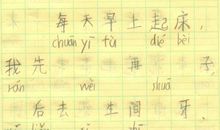 每天早上起床，
chuān yī fú dié bèi
我先 再 子
rán wèi shuā
后去 生间 牙，